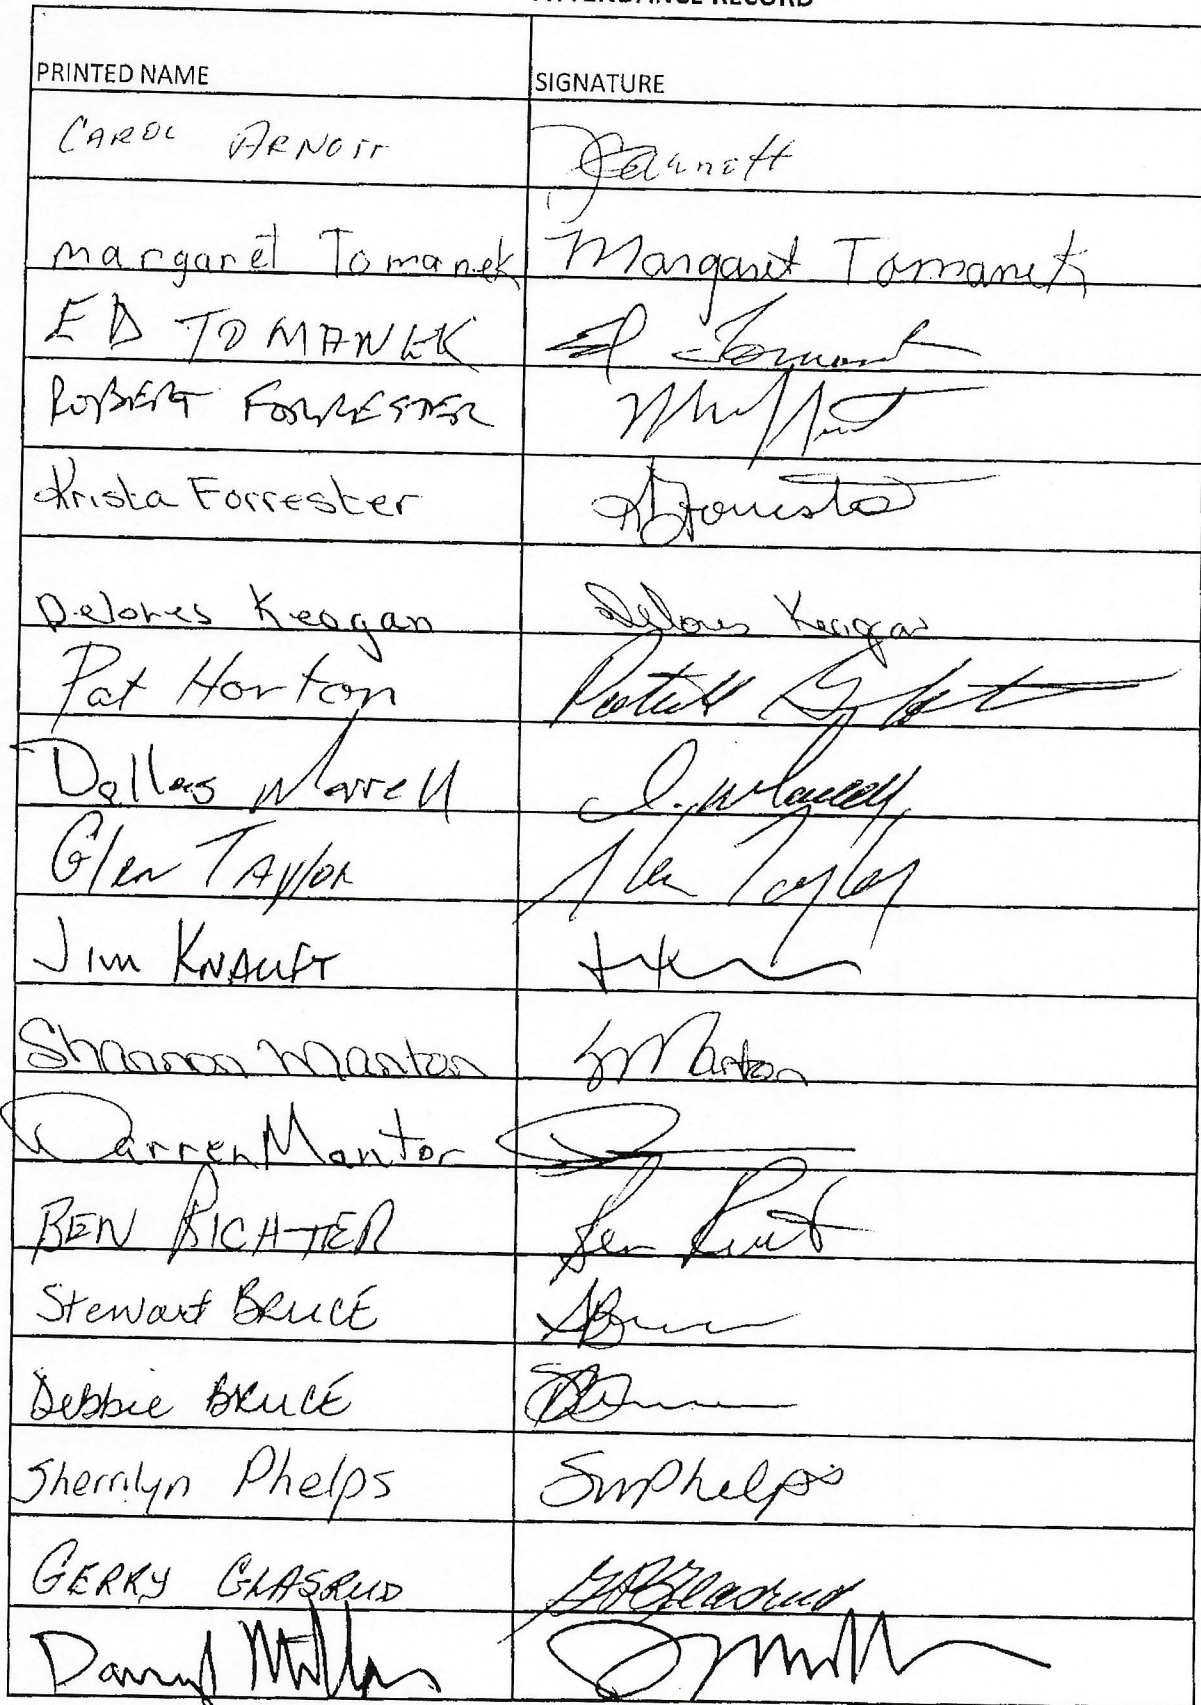 ATTENDANCE RECORD
PRINTED NAME SIGNATURE
CAROL ARNOTT JCArnott
margaret Tomanek Margaret Tomanek
ED TOMANEK Ed Tomanek
ROBERT FORRESTER
Krista Forrester KForrester
Delores Keagan Delores Keagan
Pat Horton Patrick
Dallas Marrell D. Marrell
Glen TAYlOR Glen Taylor
Jim KNAUFT
Shannon Manton SManton
Darren Mantor
BEN RICHTER Ben
Stewart BRUCE SBruce
Debbie BRUCE
Sherrilyn Phelps SMPhelps
GERRY GLASRUD Glasrud
Darryl Miller